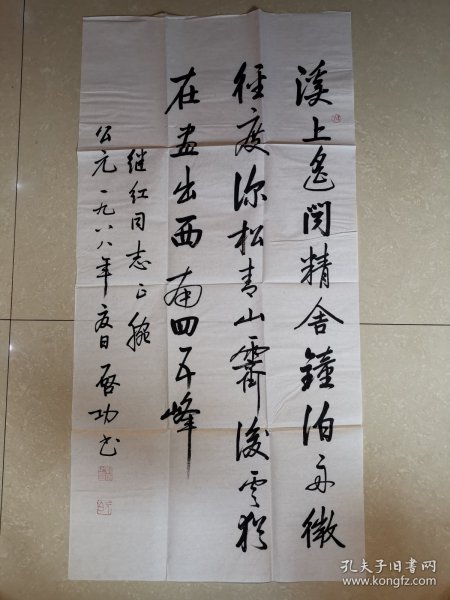 溪上遙闻精舍鐘泊舟微
徑度深松青山霽後雲猶
在畫出西南四五峰
继红同志正腕
公元一九八八年夏日 启功书
孔夫子旧书网
www.kongfz.com